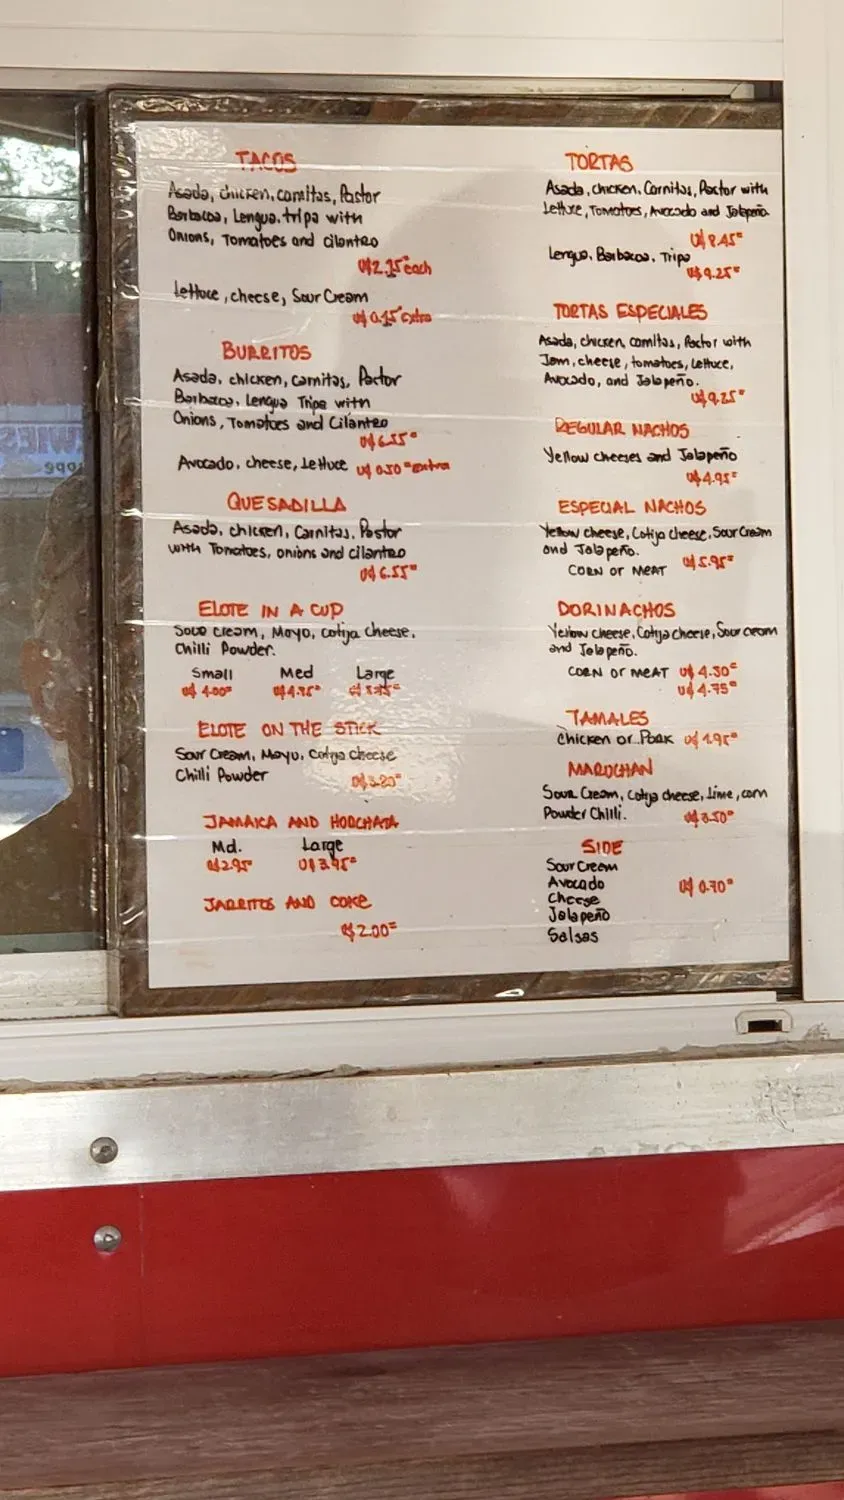 TACOS
Asada, chicken, carnitas, Pastor
Barbacoa, Lengua, tripa with
Onions, Tomatoes and cilantro
each
Lettuce, cheese, Sour Cream
extra
BURRITOS
Asada, chicken, carnitas, Pastor
Barbacoa, Lengua Tripa with
Onions, Tomatoes and Cilantro
U$ 6.55
Avocado, cheese, Lettuce U$ 0.50 extra
QUESADILLA
Asada, chicken, Carnitas, Pastor
with Tomatoes, onions and cilantro
U$ 6.55
ELOTE IN A CUP
Sour cream, Mayo, cotija cheese,
Chilli Powder.
Small Med Large
U$ 4.00 U$ 4.75
ELOTE ON THE STICK
Sour Cream, Mayo, Cotija Cheese
Chilli Powder
JAMAICA AND HORCHATA
Md. Large
U$ 2.95 U$ 3.95
JARRITOS AND COKE
U$ 2.00
TORTAS
Asada, chicken, Carnitas, Pastor with
Lettuce, Tomatoes, Avocado and Jalapeño
U$ 8.45
Lengua, Barbacoa, Tripa
U$ 9.25
TORTAS ESPECIALES
Asada, chicken, carnitas, Pastor with
Jam, cheese, tomatoes, Lettuce,
Avocado, and Jalapeño.
U$ 9.25
REGULAR NACHOS
Yellow cheeses and Jalapeño
U$ 4.95
ESPECIAL NACHOS
Yellow cheese, Cotija cheese, Sour Cream
and Jalapeño.
U$ 5.95
CORN or MEAT
DORINACHOS
Yellow cheese, Cotija cheese, Sour cream
and Jalapeño.
CORN or MEAT U$ 4.50
U$ 4.75
TAMALES
Chicken or Pork U$ 1.95
MARUCHAN
Sour Cream, Cotija cheese, Lime, corn
Powder Chilli. U$ 3.50
SIDE
Sour Cream
Avocado U$ 0.70
Cheese
Jalapeño
Salsas